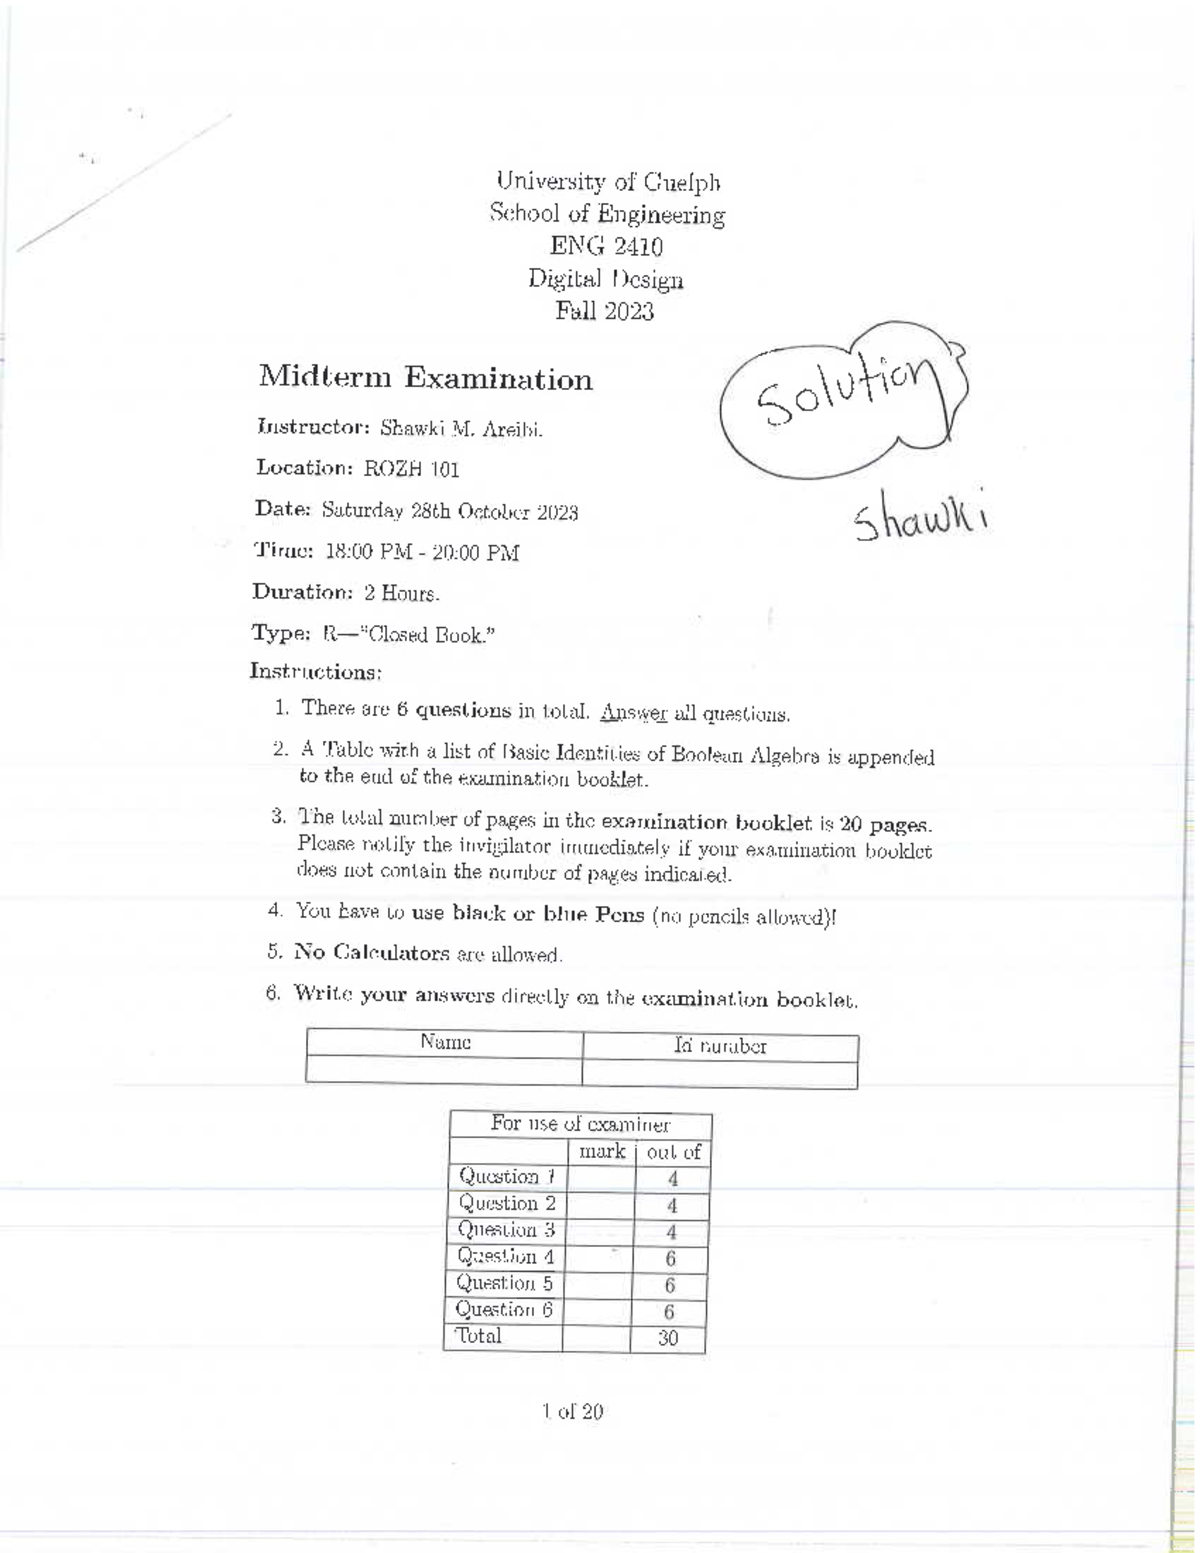 University of Guelph
School of Engineering
ENG 2410
Digital Design
Fall 2023
Solution
Midterm Examination
Instructor: Shawki M. Areibi.
Location: ROZH 101
Shawki
Date: Saturday 28th October 2023
Time: 18:00 PM - 20:00 PM
Duration: 2 Hours.
Type: R—"Closed Book."
Instructions:
1. There are 6 questions in total. Answer all questions.
2. A Table with a list of Basic Identities of Boolean Algebra is appended
to the end of the examination booklet.
3. The total number of pages in the examination booklet is 20 pages.
Please notify the invigilator immediately if your examination booklet
does not contain the number of pages indicated.
4. You have to use black or blue Pens (no pencils allowed)!
5. No Calculators are allowed.
6. Write your answers directly on the examination booklet.
Name Id number
For use of examiner
mark out of
Question 1 4
Question 2 4
Question 3 4
Question 4 6
Question 5 6
Question 6 6
Total 30
1 of 20